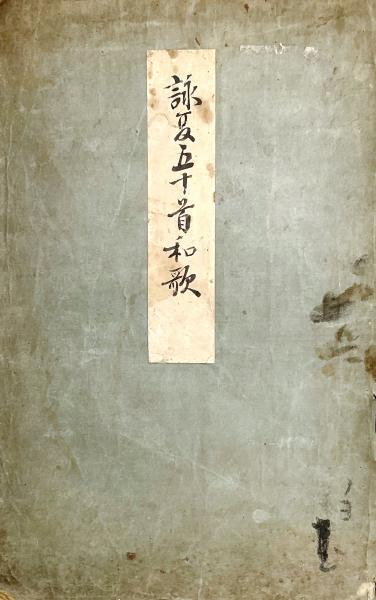 詠夏五十首和歌